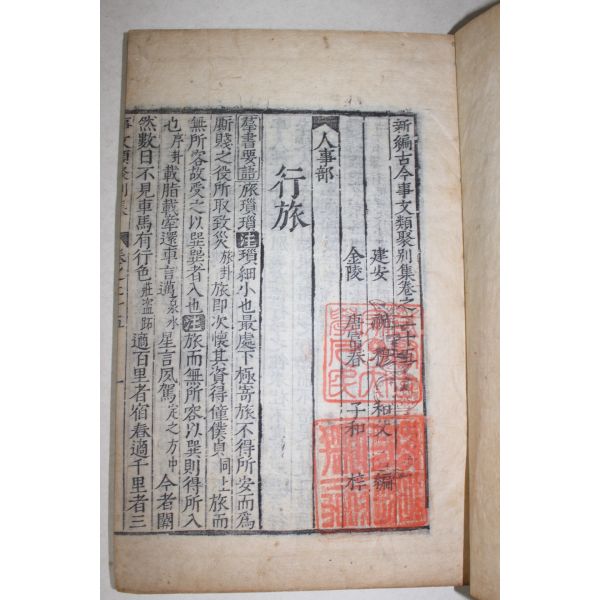 新編古今事文類聚別集卷之二十五
建安 祝穆 和父 編
金陵 唐富春 子和 梓
人事部
行旅
羣書要語旅瑣瑣注瑣細小也最處下極寄旅不得所安而爲
厮賤之役所取致災旅卦旅即次懷其資得僮僕貞同上旅而
無所容故受之以巽巽者入也注旅而無所容以巽則得所入
也序卦載脂載舝還車言邁泉水星言夙駕定之方中今者闕
然數日不見車馬有行色莊盗跖適百里者宿舂適千里者三
事文類聚別集